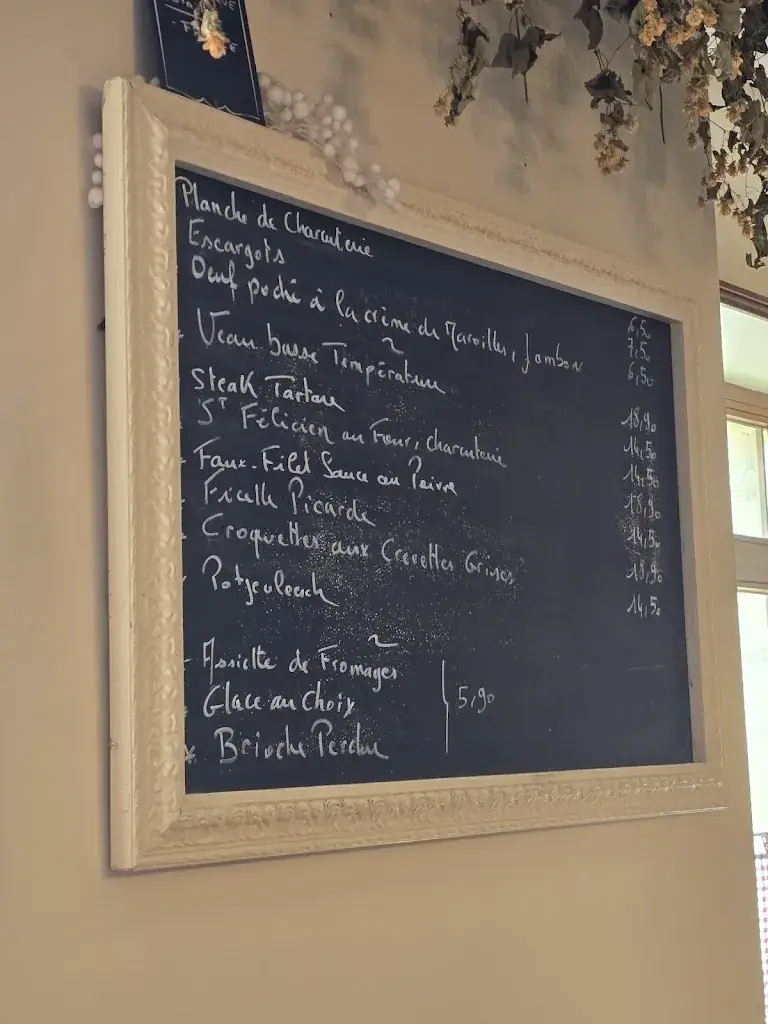 Planche de Charcuterie 6,50
Escargots 7,50
Oeuf poché à la crème de Maroilles, Jambon 6,50
~
Veau basse Température 18,90
Steak Tartare 14,50
St Félicien au Four, Charcuterie 14,50
Faux-Filet Sauce au Poivre 18,90
Ficelle Picarde 14,50
Croquettes aux Crevettes Grises 18,90
Potjevleesch 14,50
~
- Assiette de Fromages
Glace au Choix 5,90
* Brioche Perdue